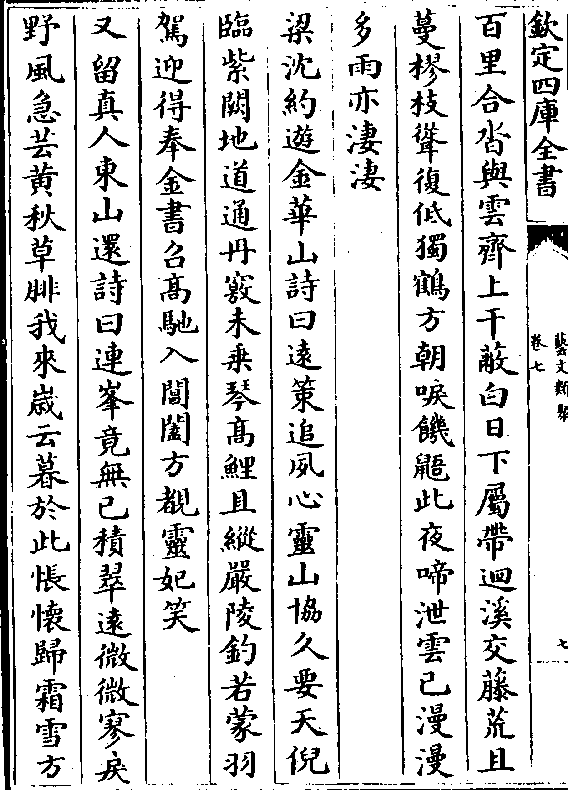 欽定四庫全書
藝文類聚
卷七
七
百里合沓與雲齊上干蔽白日下屬帶迴溪交藤荒且
蔓樛枝聳復低獨鶴方朝唳饑鼯此夜啼泄雲已漫漫
多雨亦淒淒
梁沈約遊金華山詩曰遠策追夙心靈山協久要天倪
臨紫闕地道通丹竅未乗琴髙鯉且縱嚴陵釣若蒙羽
駕迎得奉金書召髙馳入閶闔方覩靈妃笑
又留真人東山還詩曰連峯竟無已積翠遠微微寥戾
野風急芸黄秋草腓我來嵗云暮於此悵懷歸霜雪方